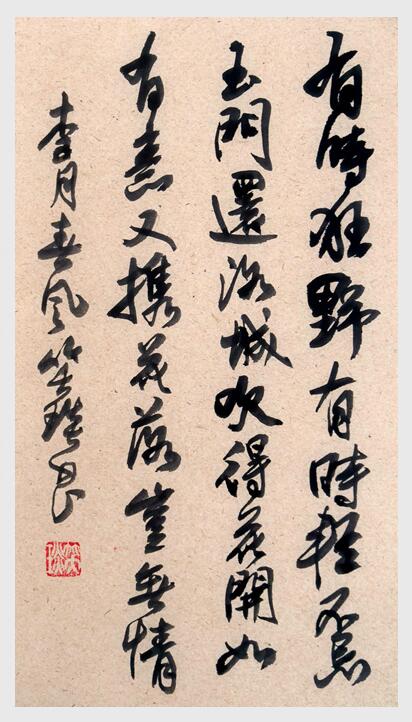 有時狂野有時輕不
玉門還洛城吹得花開如
有意又携花落豈無情
李月春風